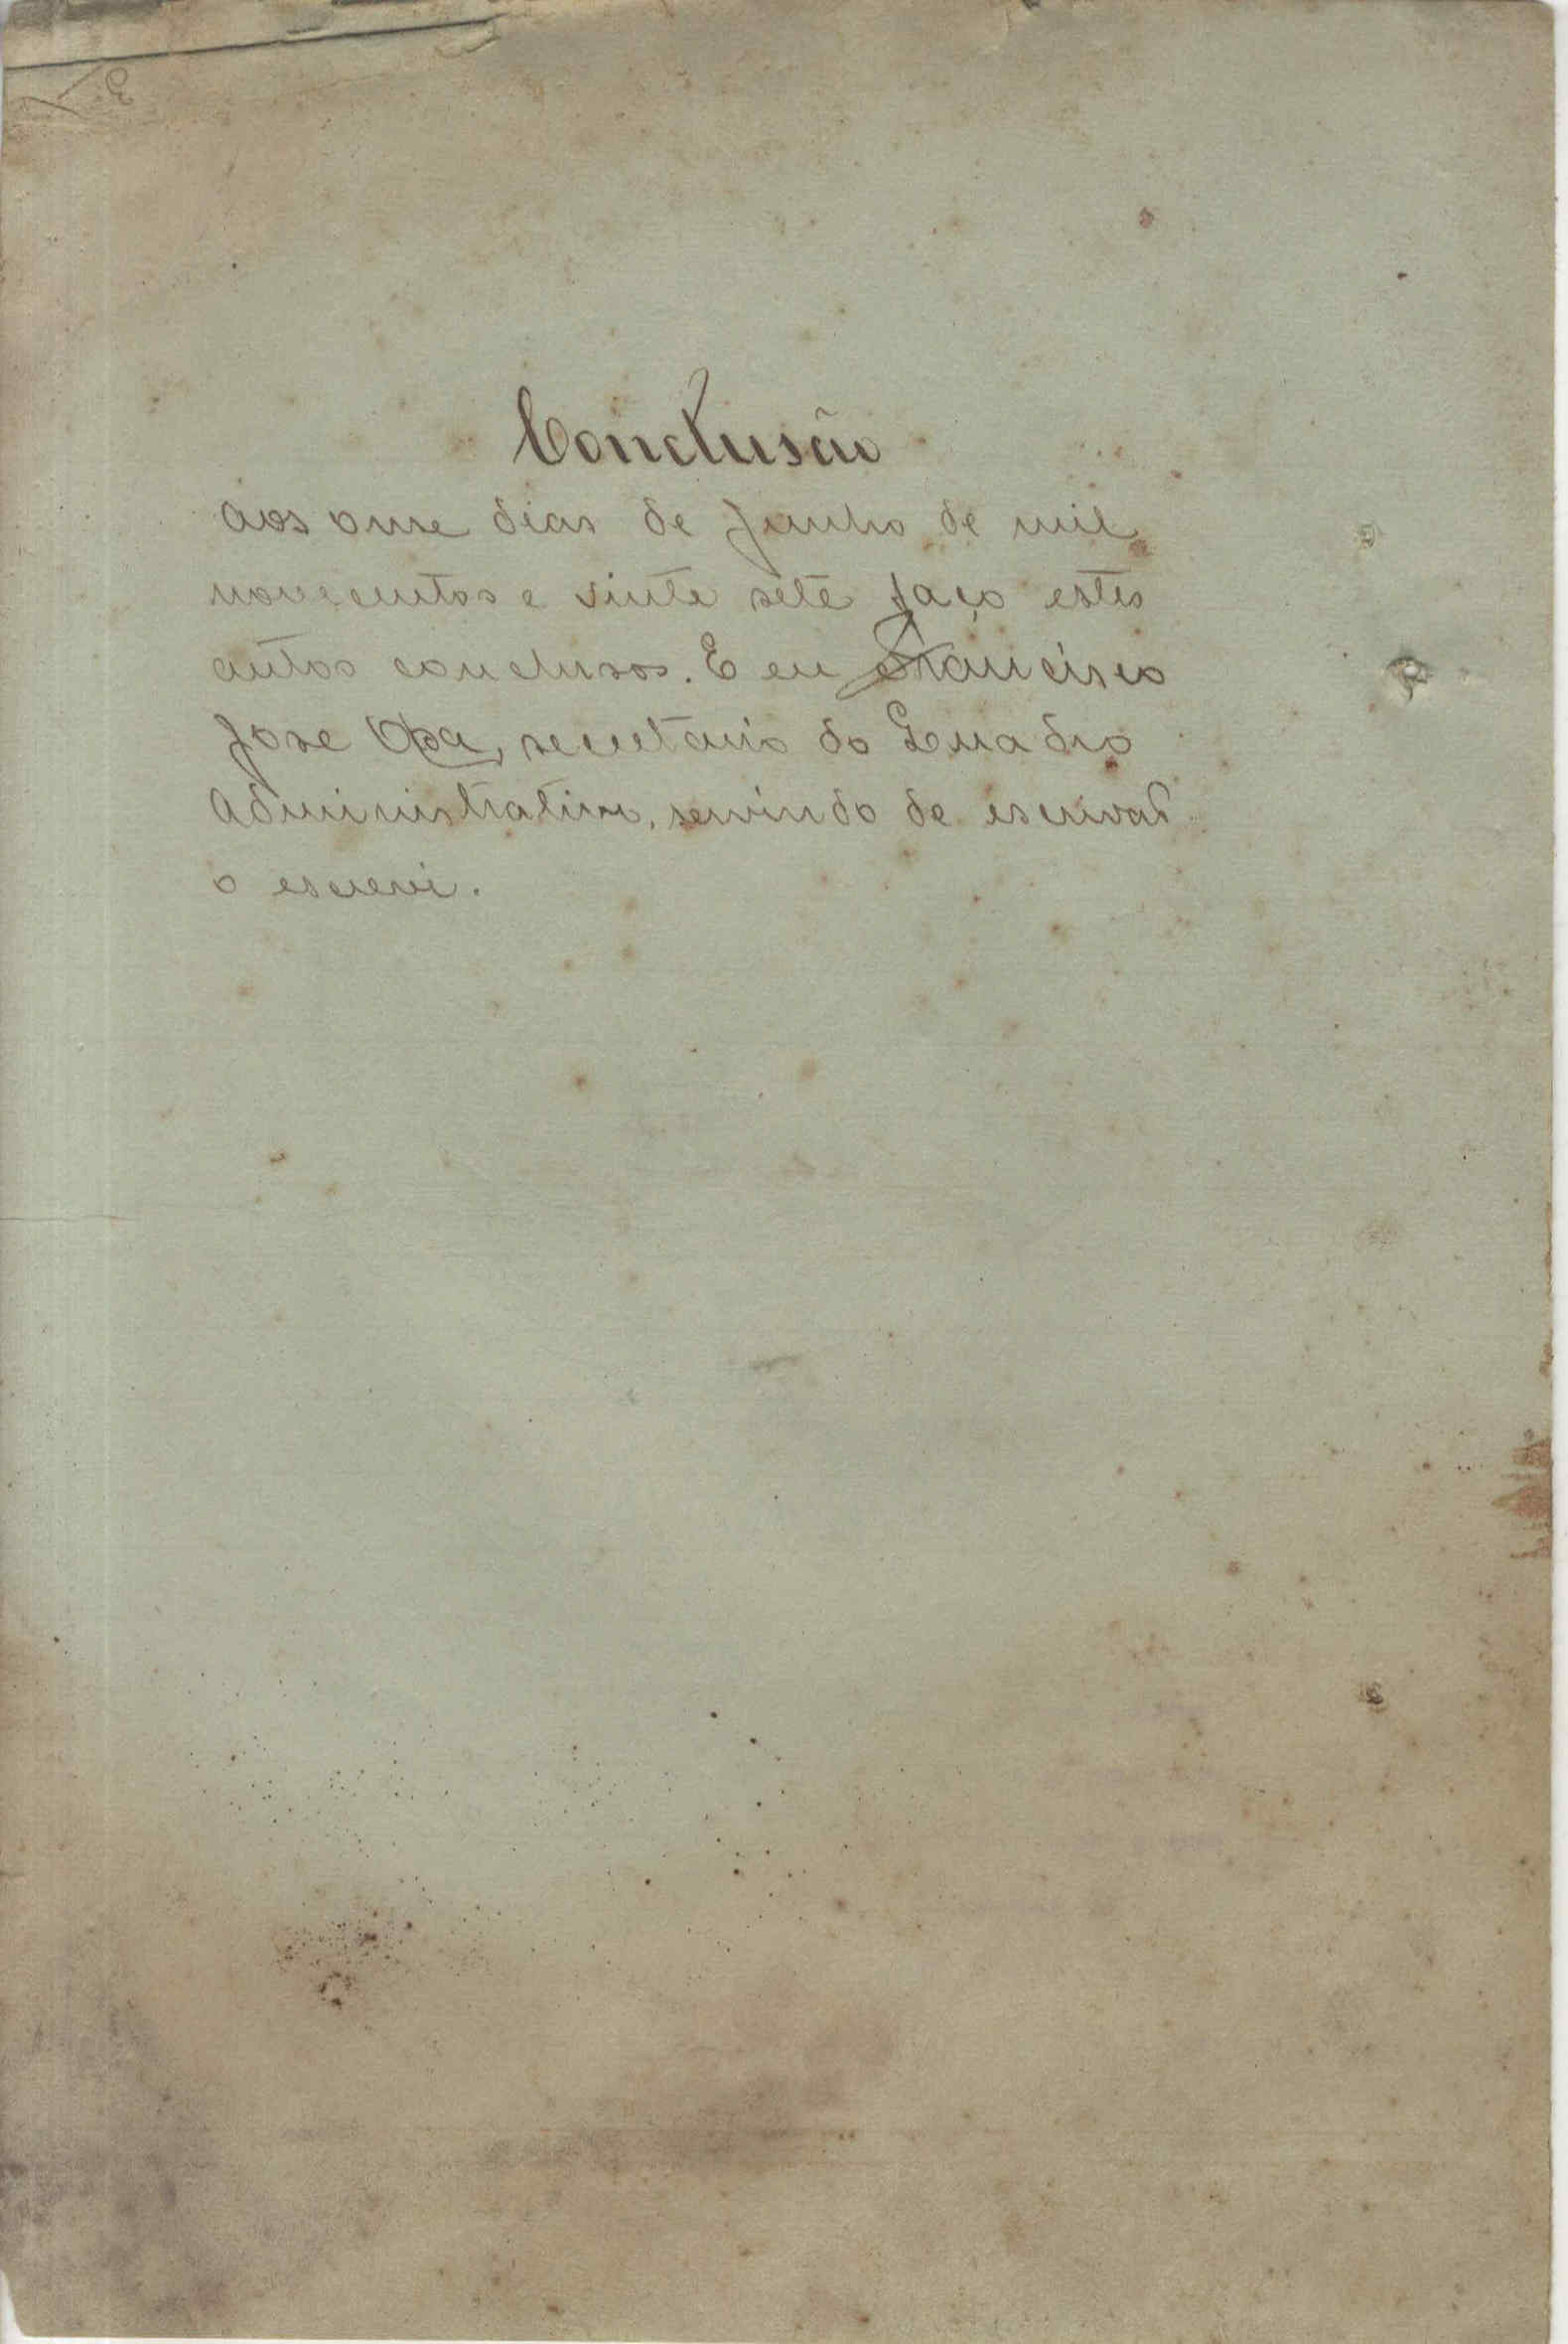 Conclusão
aos onse dias de Junho de mil
novecentos e vinte sete faço estes
autos conclusos. E eu Francisco
Jose secretario do Quadro
Administrativo, servindo de escrivaõ
o escrevi.